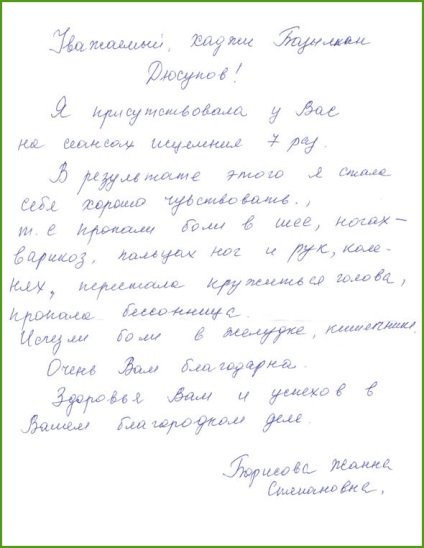 Уважаемый, хаджи Базылкан
Дюсупов!
Я присутствовала у Вас
на сеансах исцеления 7 раз.
В результате этого я стала
себя хорошо чувствовать.,
т.е пропали боли в шее, ногах-
варикоз, пальцах ног и рук, коле-
нях, перестала кружиться голова,
пропала бессонница.
Исчезли боли в желудке, кишечнике.
Очень Вам благодарна.
Здоровья Вам и успехов в
Вашем благородном деле.
Борисова Жанна
Степановна.